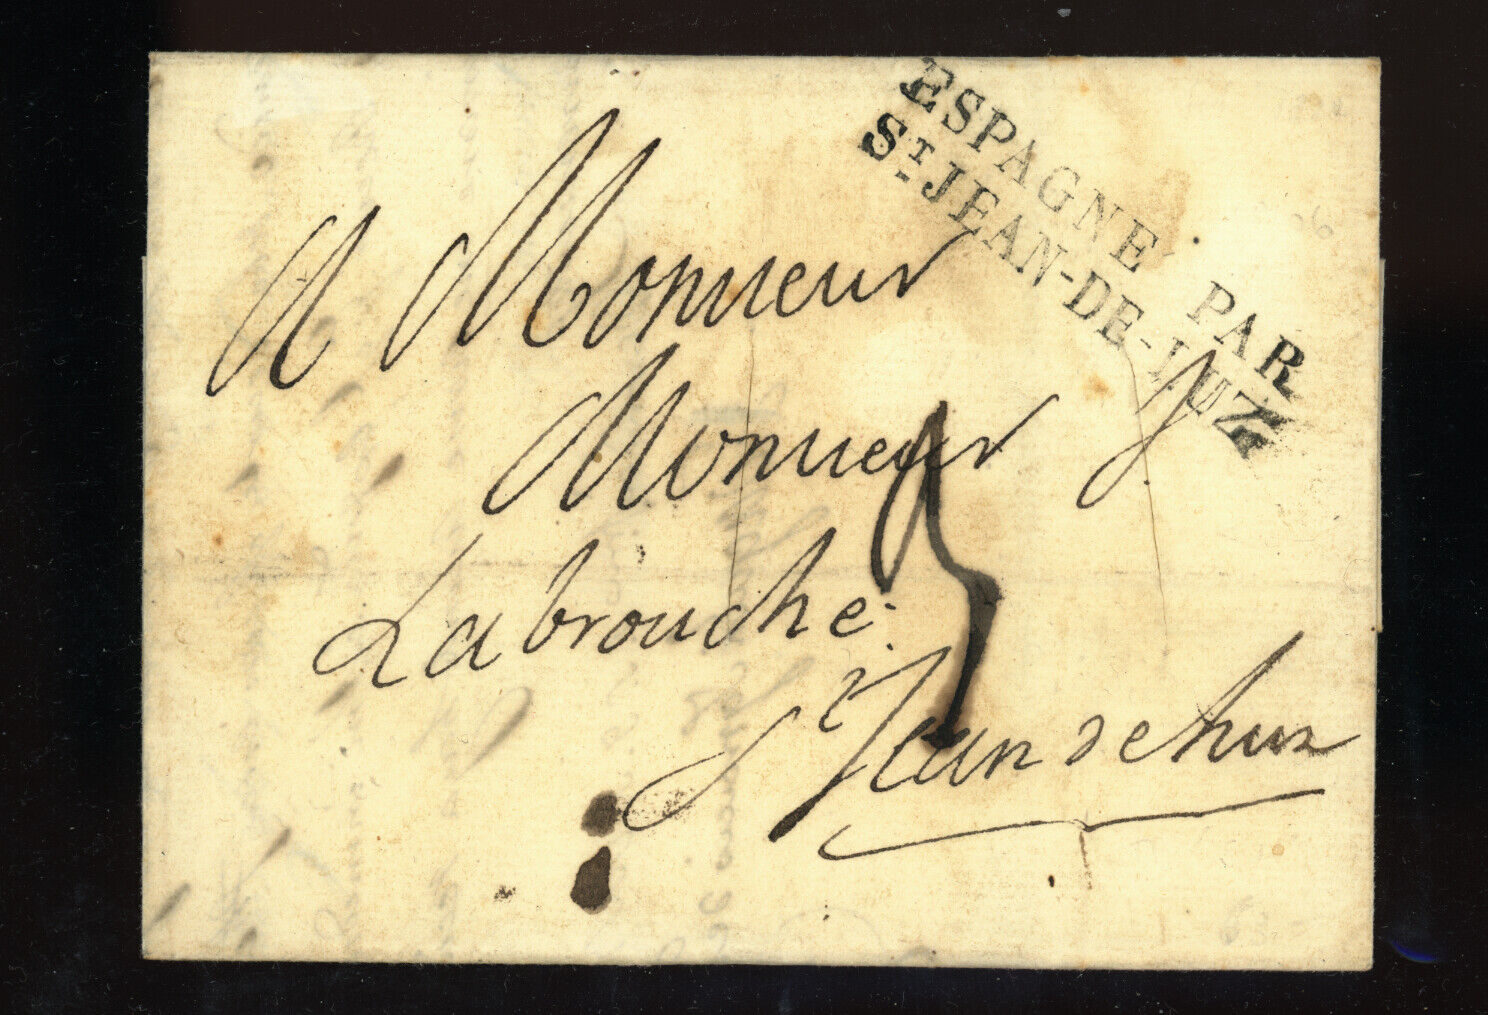 ESPAGNE PAR
ST JEAN-DE-LUZ
A Monsieur
Monsieur J
Labrouche
St Jean de Luz